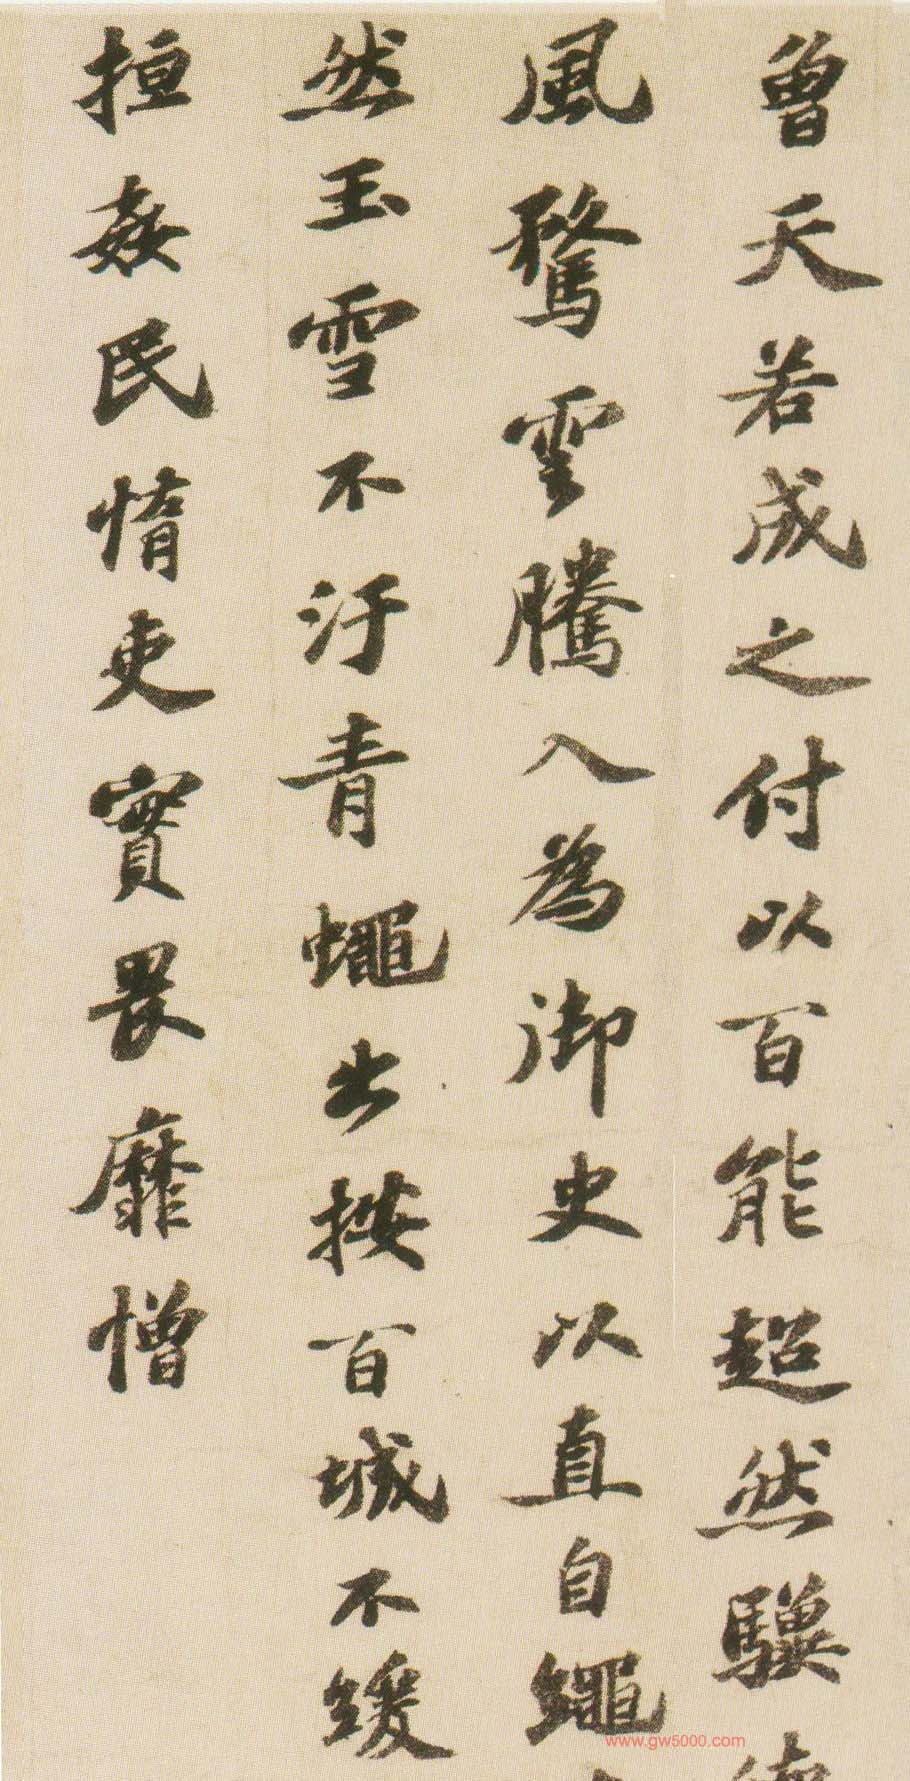 曾天若成之付以百能超然驥德
風騖雲騰入為御史以直自繩
然玉雪不汙青蠅出按百城不緩
姦民惰吏實畏靡憎
www.gw5000.com